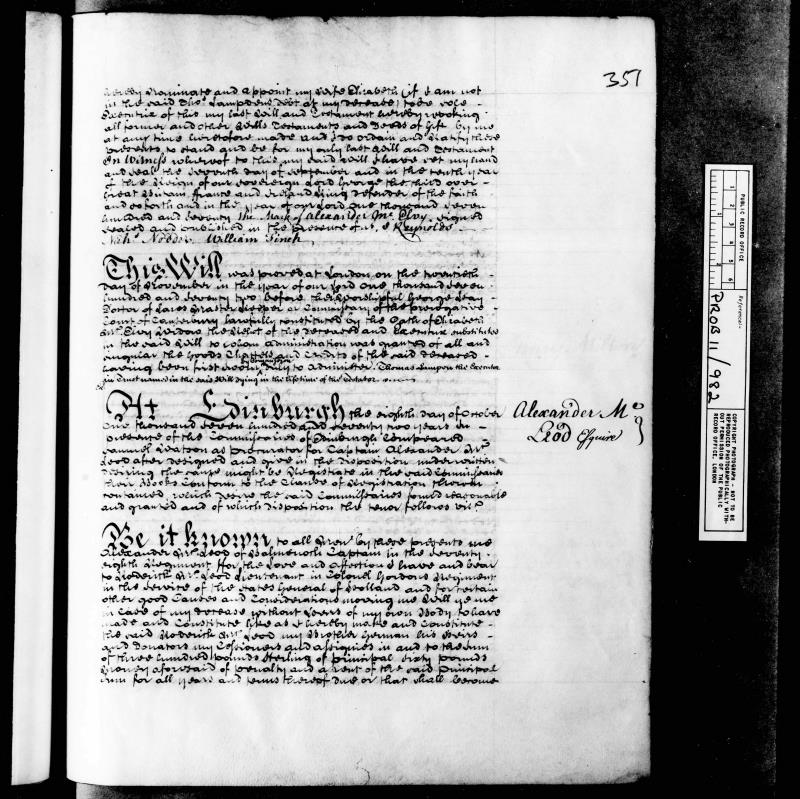 357
hereby Nominate and appoint my Wife Elizabeth (if I am not
in the said Thos. Lampdens debt at my decease) to be sole
Executrix of this my last Will and Testament hereby revoking
all former and other Wills Testaments and Deeds of Gift by me
at any time heretofore made and I do ordain and Ratify these
presents to stand and be for my only last Will and Testament
In Witness whereof to this my said Will I have set my hand
and seal the seventh day of September and in the tenth year
of the Reign of our Sovereign Lord George the third over
Great Britain France and Ireland King Defender of the faith
and so forth and in the year of our Lord One thousand seven
hundred and seventy The Mark of Alexander Mc. Elvoy. signed
sealed and published in the presence of us. Reynolds.
Nichs. William Finch
This Will was proved at London on the twentieth
day of November in the year of our Lord One thousand seven
hundred and seventy two before the Worshipful George Hay
Doctor of Laws Master Keeper or Commissary of the prerogative
Court of Canterbury lawfully constituted by the Oath of Elizabeth
the Relict of the deceased and Executrix substituted
in the said Will to whom administration was granted of all and
singular the Goods Chattels and Credits of the said deceased
having been first sworn duly to administer. Thomas the Executor
in Trust named in the said Will dying in the lifetime of the Testator
At Edinburgh the eighth day of October
One thousand seven hundred and seventy two years In
presence of the Commissaries of Edinburgh Compeared
Samuel Watson as procurator for Captain Alexander Mc.
Leod after designed and gave in the Disposition underwritten
Desiring the same might be Registrate in the said Commissaries
their Books Conform to the Clause of Registration therein
contained, which desire the said Commissaries found reasonable
and granted and of which Disposition the tenor follows vizt.
Alexander Mc.
Leod Esquire
Be it known to all Men by these presents me
Alexander Mc. Leod of Balmenoch Captain in the seventy
eighth Regiment for the Love and affection I have and bear
to Roderick Mc. Leod Lieutenant in Colonel Gordons Regiment
in the Service of the States General of Holland and for certain
other good Causes and Considerations moving me Will ye me
in Case of my decease without Heirs of my own Body to have
made and Constitute like as I hereby make and Constitute
the said Roderick Mc. Leod my Brother German his Heirs
and Donators my Cessioners and assignies in and to the sum
of three hundred pounds Sterling of principal sixty pounds
Money aforesaid of penalty and arent of the said principal
sum for all years and terms thereof due or that shall become
PUBLIC RECORD OFFICE
1 2 3 4 5 6
Reference:-
PROB 11/982
COPYRIGHT PHOTOGRAPH - NOT TO BE
REPRODUCED PHOTOGRAPHICALLY WITH-
OUT PERMISSION OF THE PUBLIC
RECORD OFFICE, LONDON